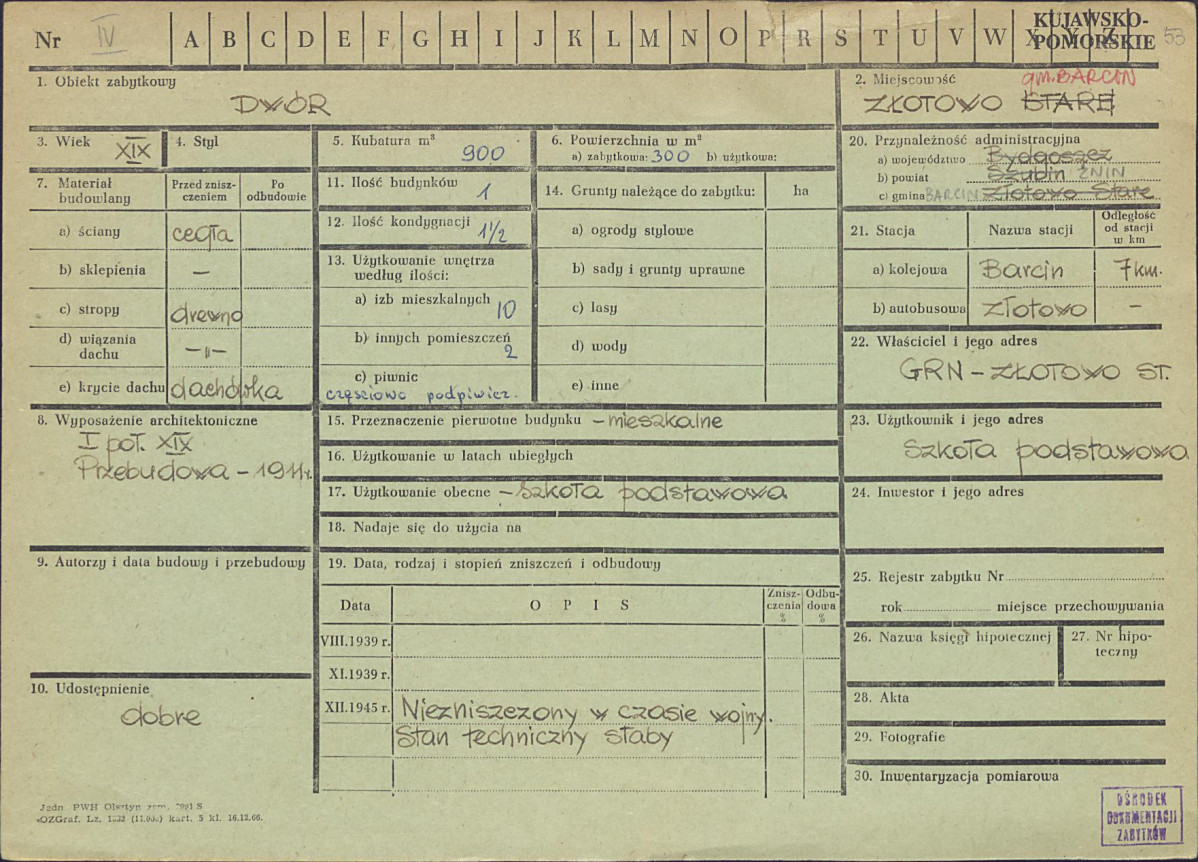 Nr IV A B C D E F G H I J K L M N O P R S T U V W X Y Z KUJAWSKO-
POMORSKIE 53
1. Obiekt zabytkowy
DWÓR
2. Miejscowość gm. BARCIN
ZŁOTOWO STARE
3. Wiek XIX
4. Styl
5. Kubatura m³ 900
6. Powierzchnia w m²
a) zabytkowa: 300 b) użytkowa:
7. Materiał budowlany
Przed zniszczeniem
Po odbudowie
a) ściany cegła
b) sklepienia —
c) stropy drewno
d) wiązania dachu —„—
e) krycie dachu dachówka
8. Wyposażenie architektoniczne
I poł. XIX
Przebudowa – 1911r.
9. Autorzy i data budowy i przebudowy
10. Udostępnienie
dobre
11. Ilość budynków 1
12. Ilość kondygnacji 1½
13. Użytkowanie wnętrza
według ilości:
a) izb mieszkalnych 10
b) innych pomieszczeń
2
c) piwnic
częściowo podpiwicz.
14. Grunty należące do zabytku: ha
a) ogrody stylowe
b) sady i grunty uprawne
c) lasy
d) wody
e) inne
15. Przeznaczenie pierwotne budynku – mieszkalne
16. Użytkowanie w latach ubiegłych
17. Użytkowanie obecne – szkoła podstawowa
18. Nadaje się do użycia na
19. Data, rodzaj i stopień zniszczeń i odbudowy
Data OPIS Zniszczenia % Odbudowa %
VIII.1939 r.
XI.1939 r.
XII.1945 r. Niezniszczony w czasie wojny.
Stan techniczny słaby
20. Przynależność administracyjna
a) województwo Bydgoszcz
b) powiat Szubin ŻNIN
c) gmina BARCIN Złotowo Stare
21. Stacja Nazwa stacji Odległość od stacji w km
a) kolejowa Barcin 7km.
b) autobusowa Złotowo –
22. Właściciel i jego adres
GRN – ZŁOTOWO ST.
23. Użytkownik i jego adres
Szkoła podstawowa
24. Inwestor i jego adres
25. Rejestr zabytku Nr
rok miejsce przechowywania
26. Nazwa księgi hipotecznej
27. Nr hipoteczny
28. Akta
29. Fotografie
30. Inwentaryzacja pomiarowa
Jedn. PWH Olsztyn zam. S
«OZGraf. Lz. kart. 5 kl. 16.12.66.
OŚRODEK
DOKUMENTACJI
ZABYTKÓW